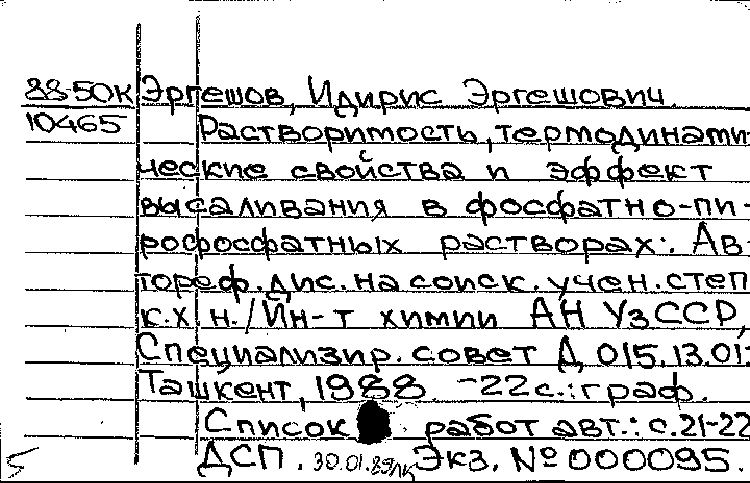 88-50К Эргешов, Идирис Эргешович.
10465 Растворимость, термодинами-
ческие свойства и эффект
высаливания в фосфатно-пи-
рофосфатных растворах: Ав-
тореф. дис. на соиск. учен. степ.
к.х.н. / Ин-т химии АН УзССР,
Специализир. совет Д 015.13.01.
Ташкент, 1988. -22 с.: граф.
Список работ авт.: с. 21-22
ДСП. 30.01.89 Экз. № 000095.
5